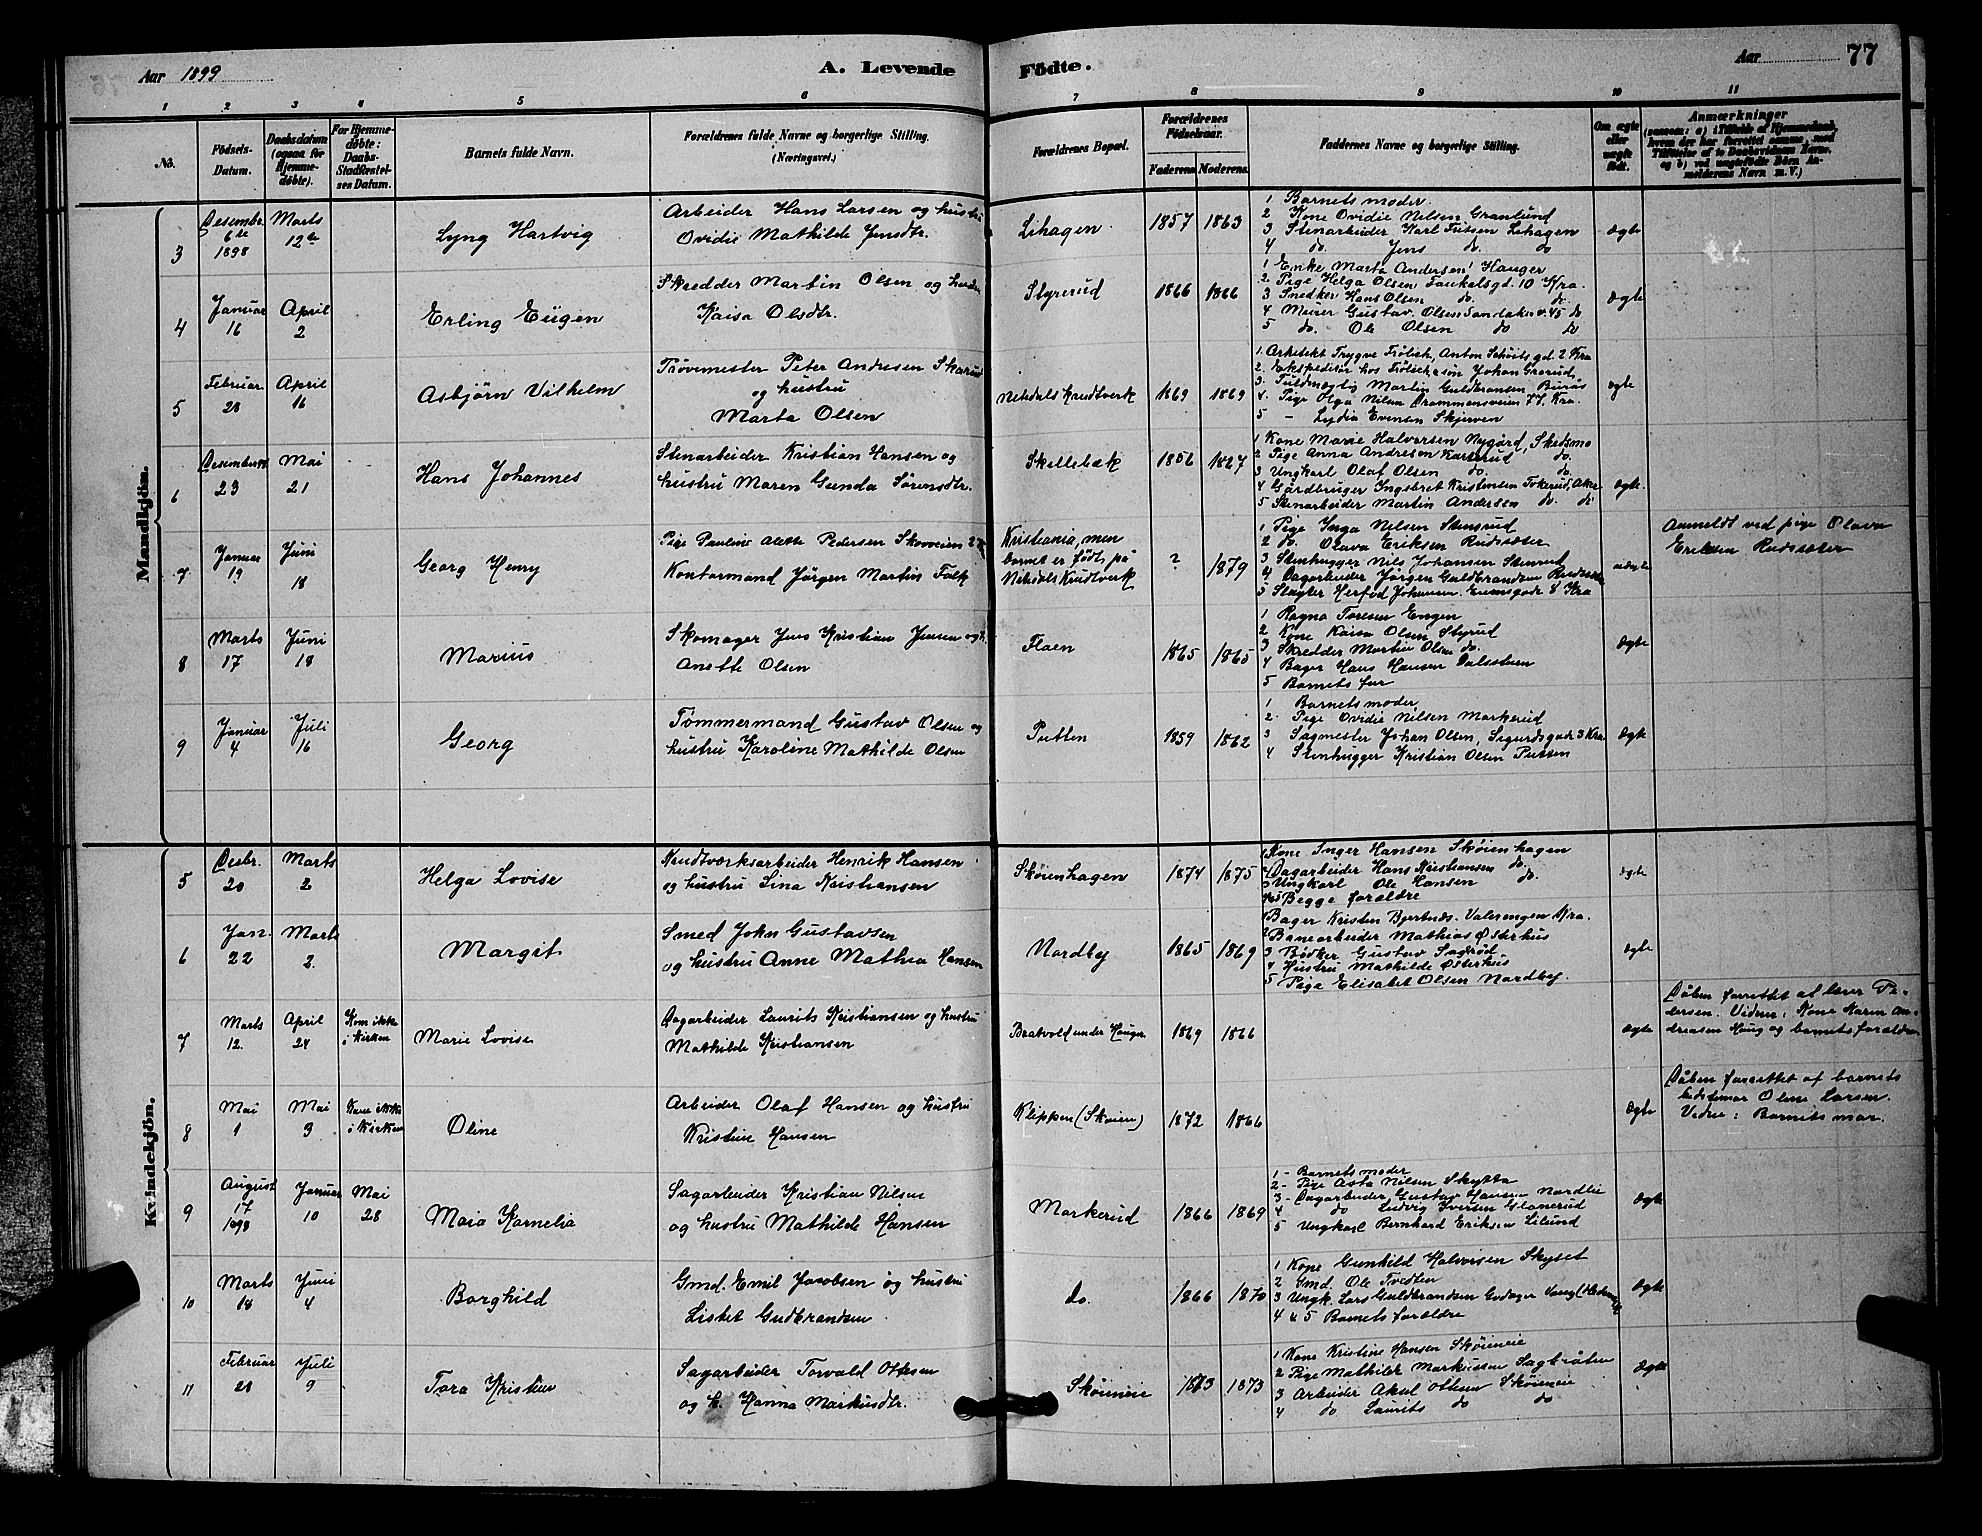 Aar 1899
A. Levende Födte.
Aar
77
1 2 3 4 5 6 7 8 9 10 11
No.
Födsels-Datum.
Daabsdatum (ogsaa for Hjemmedöbte).
For Hjemmedöbte: Daabs-Stadfæstelses Datum.
Barnets fulde Navn.
Forældrenes fulde Navne og borgerlige Stilling. (Næringsvei.)
Forældrenes Bopæl.
Forældrenes Födselsaar.
Faderens Moderens
Faddernes Navne og borgerlige Stilling.
Om ægte eller uægte födt.
Anmærkninger
Mandkjön.
3
Desembr. 6te 1898
Marts 12te
Lyng Hartvig
Arbeider Hans Larsen og hustru
Ovidie Mathilde Jensdtr.
Lihagen
1857 1863
1 Barnets moder.
2 Kone Ovidie Nilsen Granlund
3 Stenarbeider Karl Jensen Lihagen
4 do. Jens do. do
ægte
4
Januar 16
April 2
Erling Eugen
Skrædder Martin Olsen og hustru
Kaisa Olsdtr.
Styrerud
1866 1866
1 Enke Marta Andersen Hauger
2 Pige Helga Olsen 10 Kra.
3 Snedker Hans Olsen do. do.
4 Murer Gustav Olsen 45 do
5 do. Ole Olsen do do
ægte
5
Februar 28
April 16
Asbjörn Vilhelm
Prøvemester Peter Andresen Skarud
og hustru
Marta Olsen
Nitedals Krudtverk
1869 1869
1. Arkitekt Trygve Frölich, Anton Schöits gd. 2 Kra
2. Ekspeditör hos Frölich & sön Johan Grorud
3. Fuldmægtig Martin Guldbrandsen Buras
4. Pige Olga Nilsen Drammensveien 77, Kra.
5 - Lydia Evensen Skjerven
ægte
6
Desember 23
Mai 21
Hans Johannes
Stenarbeider Kristian Hansen og
hustru Maren Gunda Sörensdtr.
Skillebæk
1856 1827
1 Kone Marie Halvorsen Nygård, Skedsmo
2 Pige Anna Andresen Karterud do.
3 Ungkarl Olaf Olsen do. do.
4 Gårdbruger Ingebret Kristensen Tokerud, Aker
5 Stenarbeider Martin Andersen do do
ægte.
7
Januar 19
Juni 18
Georg Henry
Pige Pauline Alette Pedersen Skovveien 2
Kontormand Jörgen Martin Falk
Kristiania, men
barnet er födt på
Nitedals Krudtverk
? 1879
1 Pige Inga Nilsen Stensrud
2 do. Olava Eriksen Rudsæter
3 Stenhugger Nils Johansen Stensrud
4 Dagarbeider Jörgen Guldbrandsen Rudsæter
5 Slagter Herlof Johansen 8 Kra
uægte
Anmeldt ved pige Olava
Eriksen Rudsæter
8
Marts 17
Juni 18
Marius
Skomager Jens Kristian Jensen og h.
Anette Olsen
Flaen
1865 1865
1 Ragna Toresen Engen
2 Kone Kaisa Olsen Styrud
3 Skrædder Martin Olsen do.
4 Bager Hans Hansen Dalsstuen
5 Barnets far
ægte
9
Januar 4
Juli 16
Georg
Tömmermand Gustav Olsen og
hustru Karoline Mathilde Olsen
Putten
1859 1862
1 Barnets moder
2. Pige Ovidie Nilsen Markerud
3 Sagmester Johan Olsen, Sigurdsgade 3 Kra
4 Stenhugger Kristian Olsen Putten
ægte
Kvindekjön.
5
Desbr. 20
Marts 2
Helga Lovise
Krudtverksarbeider Henrik Hansen
og hustru Lina Kristiansen
Sköienhagen
1874 1875
1 Kone Inger Hansen Sköienhagen
2 Dagarbeider Hans Kristiansen do.
3 Ungkarl Ole Hansen do.
4&5 Begge forældre
ægte
6
Jan. 22
Marts 2.
Margit
Smed John Gustavsen
og hustru Anne Mathea Hansen
Nordby
1865 1869
1 Bager Kristen Bjertnæs. Valerengen Kra.
2 Banearbeider Mathias Østerhus
3 Bödker Gustav Sagtröt
4 Hustru Mathilde Østerhus
5 Pige Elisabet Olsen Nordby.
ægte
7
Marts 12.
April 24
Kom ikke i kirken
Marie Lovise
Dagarbeider Laurits Kristiansen og hustru
Mathilde Kristiansen
Bratvold under Hauger
1869 1866
ægte
Dåben forrettet af lærer Pe-
dersen. Vidner: Kone Karen An-
dreasen Haug og barnets forældre
8
Mai 1
Mai 3
Kom ikke i kirken
Oline
Arbeider Olaf Hansen og hustru
Kristine Hansen
Klippen (Skøien)
1872 1866
ægte
Dåben forrettet af barnets
bedstemor Oline Larsen.
Vidne: Barnets mor.
9
August 17 1898
Januar 10
Mai 28
Maia Kornelia
Sagarbeider Kristian Nilsen
og hustru Mathilde Hansen
Markerud
1866 1869
1 - Barnets moder
2 - Pige Asta Nilsen Skytta
3 - Dagarbeider Gustav Hansen Nordlie
4 do Ludvig Iversen Glanerud
5 Ungkarl Bernhard Eriksen Lilund
ægte
10
Marts 18
Juni 4
Borghild
Gmd. Emil Jacobsen og hustru
Lisbet Gudbrandsen
do.
1866 1870
1 Kone Gunhild Halvorsen Skyset
2 Gmd. Ole Tvedten
3 Ungk. Lars Guldbrandsen Godager Vang (Hedem.)
4 & 5 Barnets forældre
ægte
11
Februar 21
Juli 9
Tora Kristine
Sagarbeider Torvald Ottesen
og h. Hanna Markusdtr.
Skøieneie
1873 1873
1 Kone Kristine Hansen Skøieneie
2 Pige Mathilde Markussen Sagtråten
3 Arbeider Aksel Ottesen Skøieneie
4 do Laurits do do
ægte